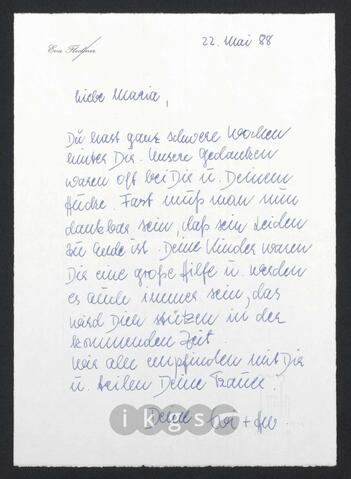 Eva
22. Mai 88
Liebe Maria,
Du hast ganz schwere Wochen
hinter Dir. Unsere Gedanken
waren oft bei Dir u. Deinem
Fast muß man nun
dankbar sein, daß sein Leiden
zu Ende ist. Deine Kinder waren
Dir eine große Hilfe u. werden
es auch immer sein, das
wird Dich stützen in der
kommenden Zeit.
Wir alle empfinden mit Dir
u. teilen Deine Trauer.
Deine
ikgs